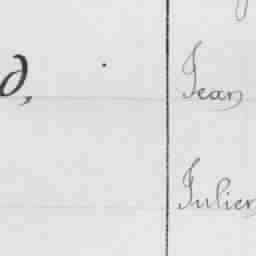 d, Jean
Julien